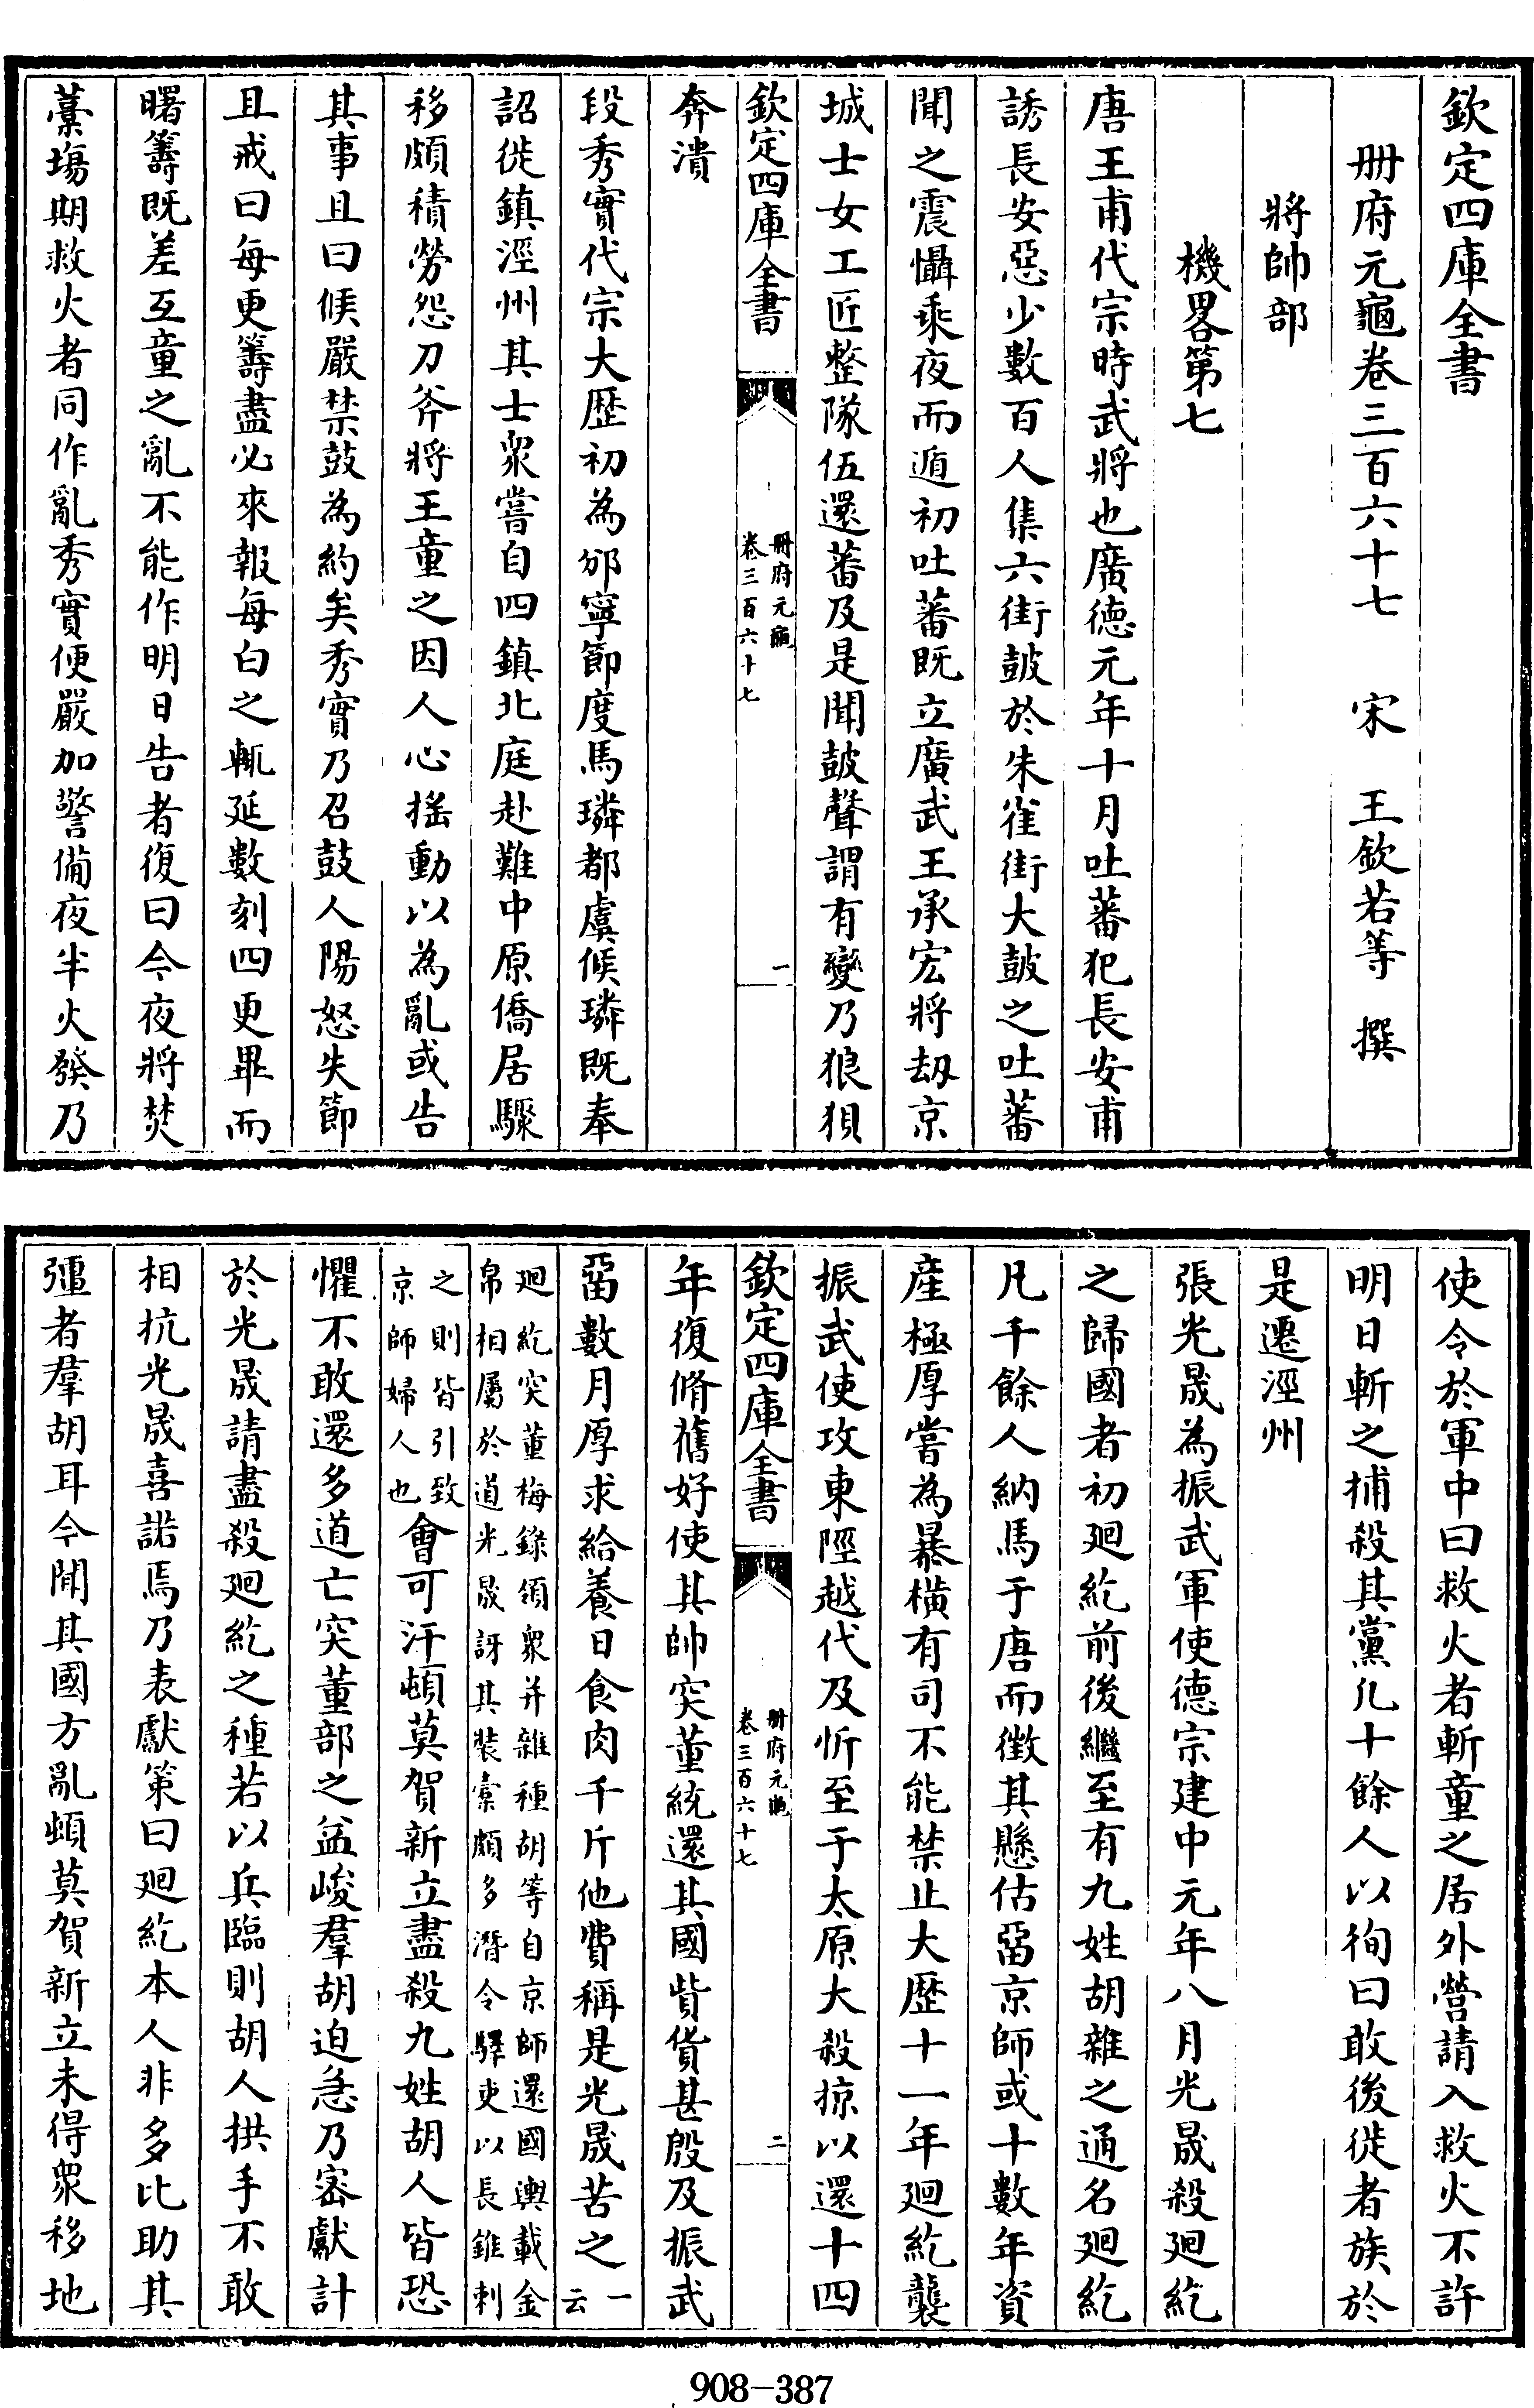 欽定四庫全書
冊府元龜卷三百六十七　宋　王欽若等　撰
將帥部
機畧第七
唐王甫代宗時武將也廣德元年十月吐蕃犯長安甫
誘長安惡少數百人集六街鼓於朱雀街大鼓之吐蕃
聞之震懾乘夜而遁初吐蕃既立廣武王承宏將刼京
城士女工匠整隊伍還蕃及是聞鼓聲謂有變乃狼狽
欽定四庫全書
冊府元龜
卷三百六十七
一
奔潰
段秀實代宗大歷初為邠寧節度馬璘都虞候璘既奉
詔徙鎮涇州其士衆嘗自四鎮北庭赴難中原僑居驟
移頗積勞怨刀斧將王童之因人心揺動以為亂或告
其事且曰候嚴禁鼓為約矣秀實乃召鼓人陽怒失節
且戒曰每更籌盡必來報每白之輒延數刻四更畢而
曙籌既差互童之亂不能作明日告者復曰今夜將焚
藁場期救火者同作亂秀實便嚴加警備夜半火發乃
使令於軍中曰救火者斬童之居外營請入救火不許
明日斬之捕殺其黨凡十餘人以徇曰敢後徙者族於
是遷涇州
張光晟為振武軍使德宗建中元年八月光晟殺廻紇
之歸國者初廻紇前後繼至有九姓胡雜之通名廻紇
凡千餘人納馬于唐而徵其懸估畱京師或十數年資
產極厚嘗為暴橫有司不能禁止大歷十一年廻紇襲
振武使攻東陘越代及忻至于太原大殺掠以還十四
欽定四庫全書
冊府元龜
卷三百六十七
二
年復脩舊好使其帥突董統還其國貲貨甚殷及振武
畱數月厚求給養日食肉千斤他費稱是光晟苦之一云
廻紇突董梅錄領衆并雜種胡等自京師還國輿載金
帛相屬於道光晟訝其裝橐頗多潛令驛吏以長錐刺
之則皆引致
京師婦人也
會可汗頓莫賀新立盡殺九姓胡人皆恐
懼不敢還多道亡突董部之益峻羣胡迫急乃密獻計
於光晟請盡殺廻紇之種若以兵臨則胡人拱手不敢
相抗光晟喜諾焉乃表獻策曰廻紇本人非多比助其
彊者羣胡耳今聞其國方亂頓莫賀新立未得衆移地
908-387